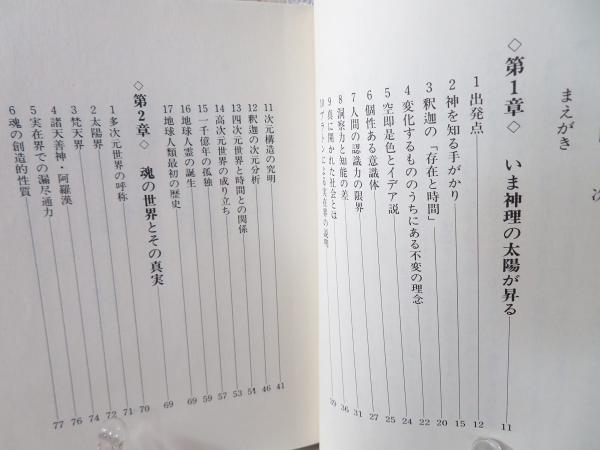 次
まえがき
◇第1章◇ いま神理の太陽が昇る 11
1 出発点 12
2 神を知る手がかり 15
3 釈迦の「存在と時間」 20
4 変化するもののうちにある不変の理念 22
5 空即是色とイデア説 24
6 個性ある意識体 25
7 人間の認識力の限界 27
8 洞察力と知能の差 31
9 真に開かれた社会とは 36
10 プラトンによる実在界の説明 39
11 次元構造の究明 41
12 釈迦の次元分析 46
13 四次元世界と時間との関係 54
14 高次元世界の成り立ち 53
15 一千億年の孤独 57
16 地球人霊の誕生 59
17 地球人類最初の歴史 69
◇第2章◇ 魂の世界とその真実 69
1 多次元世界の呼称 70
2 太陽界 71
3 梵天界 72
4 諸天善神・阿羅漢 74
5 実在界での漏尽通力 76
6 魂の創造的性質 77